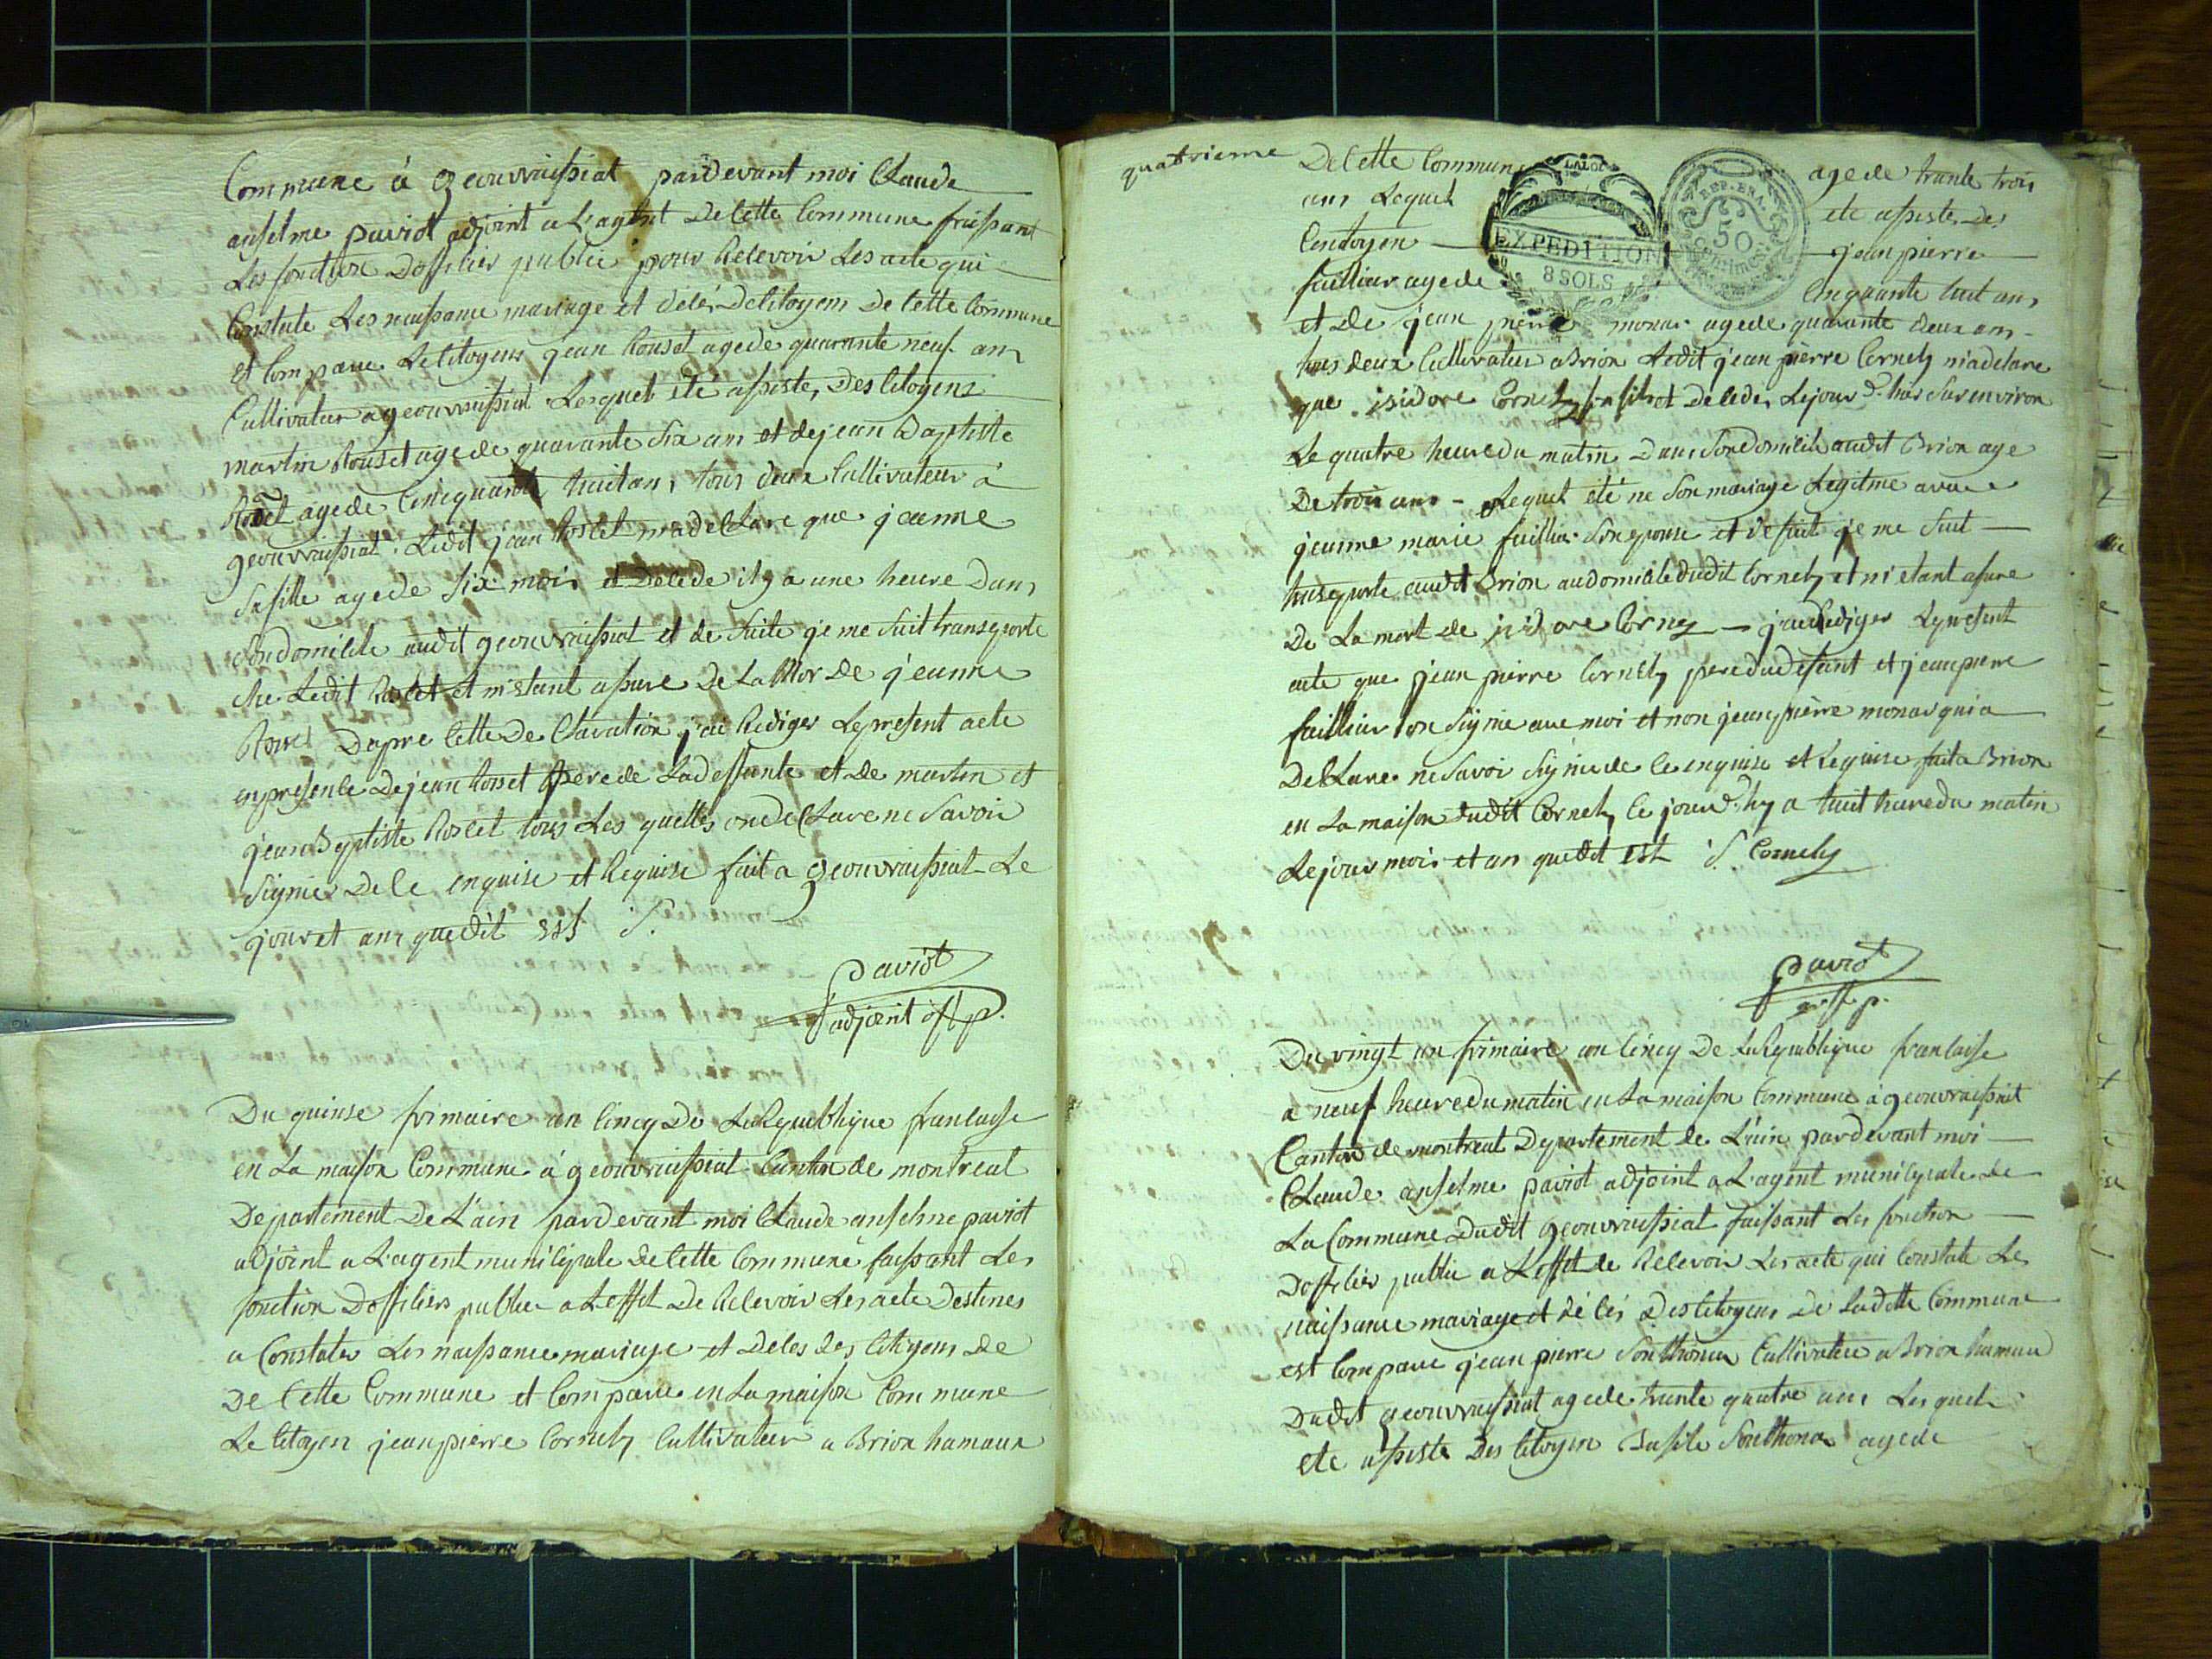 Commune à geouvraissiat pardevant moi Claude
anselme paviot adjoint a L'agent De cette Commune faissant
Les fonction Dofficier public pour Recevoir Les acte qui
Constate Les naissance mariage et décés De Citoyens De Cette Commune
et Comparu Le Citoyens jean Rouset agé de quarante neuf ans
Cultivateur a geouvraissiat Lequel été assiste, Des Citoyens
martin Rouset age de quarante Six ans et de jean Baptiste
Roset age de Cincquante huit ans, tous deux Cultivateur à
geouvraissiat. Ledit jean Roset ma declare que jeanne
Sa fille agede Six mois et Decede il y a une heure Dans
Son domicile audit geouvraissiat et de Suite je me Suit transporte
che Ledit Roset et m'etant assure De La Mor De jeanne
Dapre Cette De Claration j'ai Rediger Lepresent acte
en presence De jean Rosset Pere de La deffunte et De martin et
jean Baptiste Roset tous Les quelles on de Clare ne Savoir
Signier De Ce enquise et Requise fait a geouvraissiat Le
jour et ans que dit est S.
paviot
adjoint off p.
Du quinse frimaire an Cincq De La Republique francaise
en La maison Commune à geouvraissiat Canton de montreal
Departement De L'ain pardevant moi Claude anselme paviot
adjoint a L'agent municipale de Cette Commune faissant Les
fonction Dofficiers public a L'effet De Recevoir Les acte Destines
a Constater Les naissance mariage et Deces des Citoyens de
De Cette Commune et Comparu en La maison Commune
Le Citoyen jean pierre Cornely Cultivateur a Brion hamaux
quatrieme
De Cette Commune agede trante trois
ans Lequel ete assiste, Des
Citoyen jean pierre
faillier agede Cinquante huit ans
LALOI
EXPEDITION
8 SOLS
REP. FRA.
50
Centimes
et De jean pierre monar agede quarante deux ans
tous deux Cultivateur a Brion Ledit jean pierre Cornely m'a declare
que isidore Cornely Sa fils et Decede, Le jour D'huis Sur environ
Le quatre heure du matin Dans Son domicile audit Brion age
De trois ans Lequel été ne Son mariage Legitme avec
jeanne marie faillier Son epouse et de Suit je me Suit
transporte audit Brion au domicile dudit Cornely et m'etant asure
De La mort de isidore Cornely j'ai Rediger Le present
acte que jean pierre Cornely pere du defunt et jean pierre
faillier on Signie avec moi et non jean pierre monar qui a
De Clare ne Savoir Signie de Ce enquise et Requise fait a Brion
en La maison dudit Cornely Ce jour d'hy a huit heure du matin
Le jour mois et an que dit est S. Cornely
paviot
off. p.
Du vingt un frimaire an Cincq De La Republique francaise
a neuf heure du matin en La maison Commune à geouvraissiat
Canton de montreal Departement de L'ain pardevant moi
Claude anselme paviot adjoint a L'agent municipale de
La Commune Dudit geouvraissiat faissant Les fonction
Dofficier public a L'effet de Recevoir Les acte qui Constate Les
naissance mariage et décés Des Citoyens De Ladite Commune
est Comparu jean pierre Sonthonax Cultivateur a Brion hamau
Dudit geouvraissiat agede trante quatre ans Lesquel
ete assiste Des Citoyen Basile Sonthonax agede